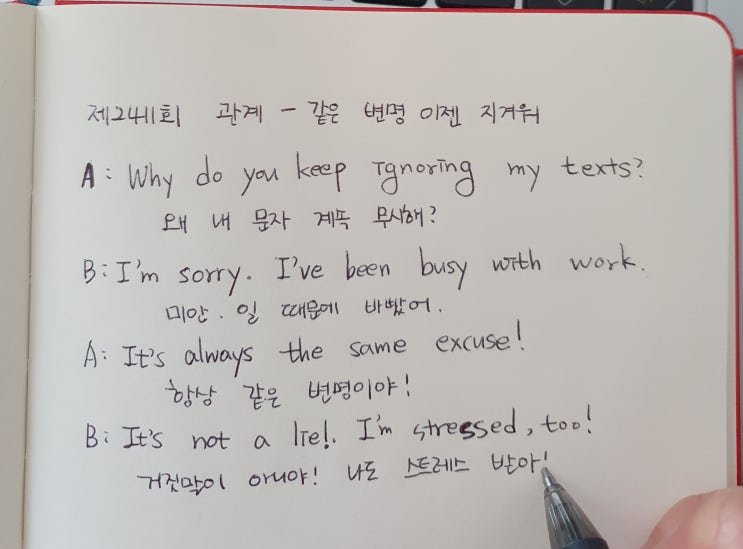 제2411회 관계 - 같은 변명 이젠 지겨워
A: Why do you keep ignoring my texts?
왜 내 문자 계속 무시해?
B: I'm sorry. I've been busy with work.
미안. 일 때문에 바빴어.
A: It's always the same excuse!
항상 같은 변명이야!
B: It's not a lie!. I'm stressed, too!
거짓말이 아니야! 나도 스트레스 받아!